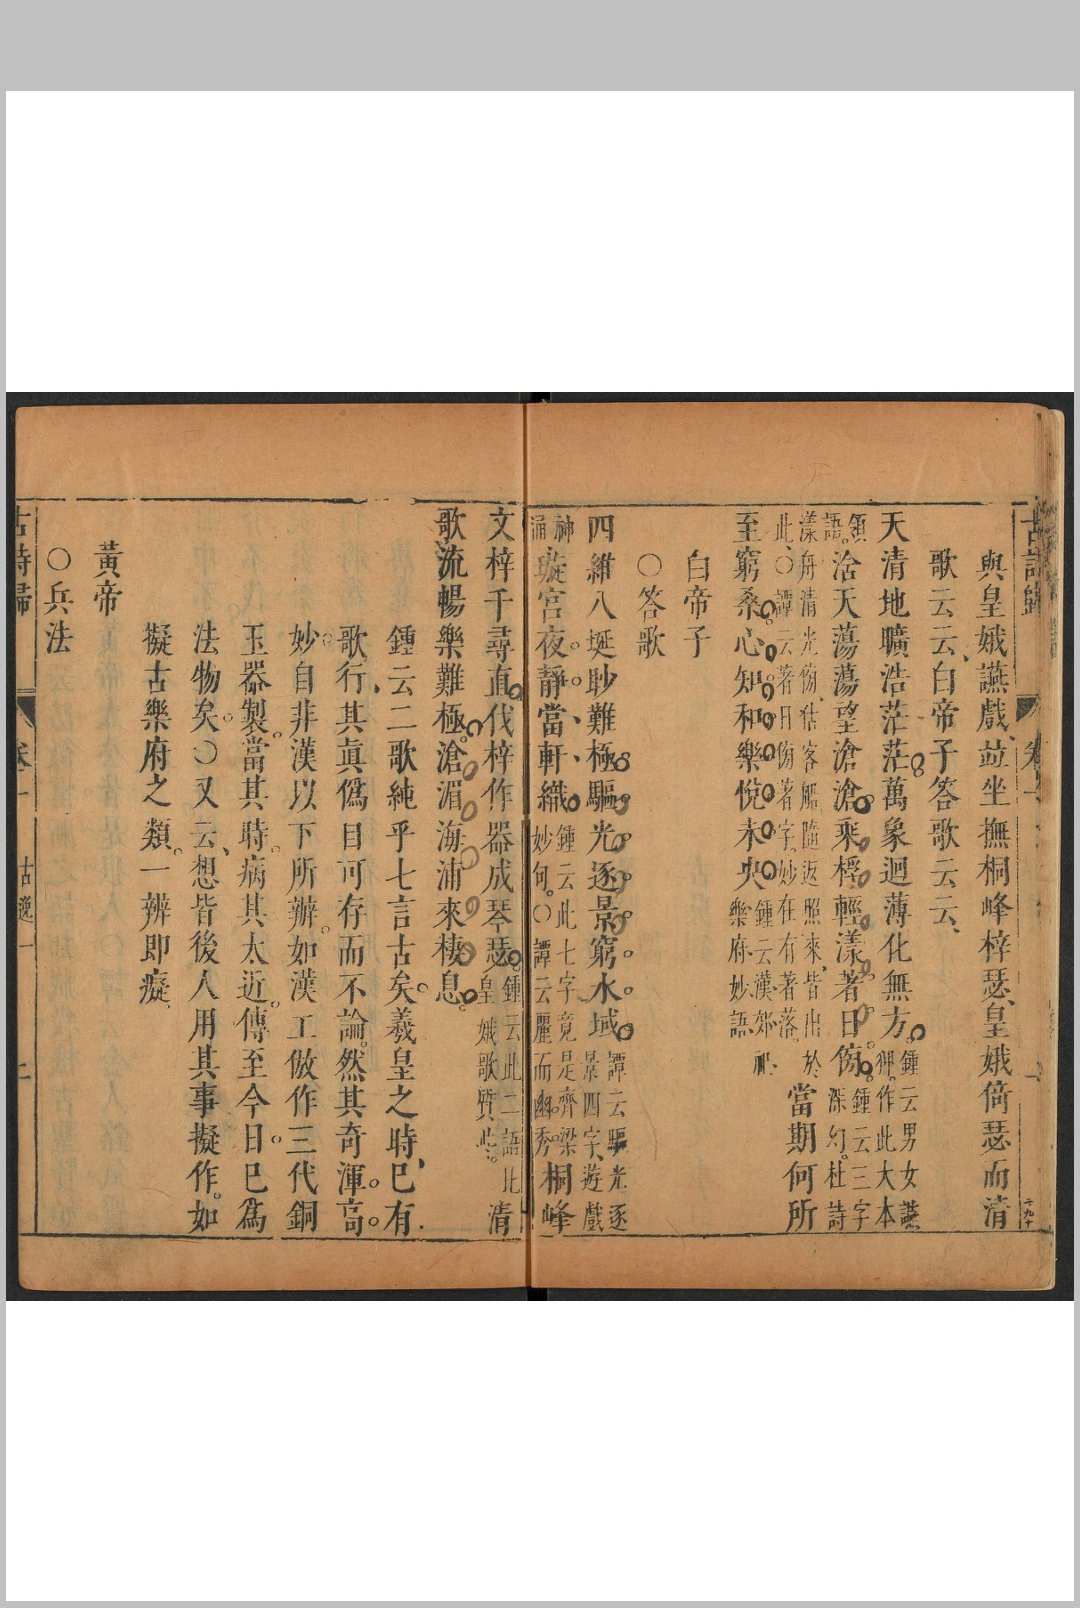 古詩歸 卷一 古逸
與皇娥讌戲、並坐撫桐峰梓瑟、皇娥倚瑟而清
歌云云、白帝子答歌云云、
天清地曠浩茫茫萬象迴薄化無方鍾云男女讌
狎作此大本
領語滄天蕩蕩望滄滄乘桴輕漾著日傍鍾云三字
深幻杜詩
漾舟清光傍估客艇隨返照來、皆出於
此、〇譚云著日傍著字妙在有著落
當期何所
至窮桑心知和樂悅未央鍾云漢郊祀
樂府妙語
白帝子
〇答歌
四維八埏眇難極驅光逐景窮水域譚云驅光逐
景四字遊戲
神涌璇宮夜靜當軒織鍾云此七字竟是齊梁
妙句〇譚云麗而幽秀
桐峰
文梓千尋直伐梓作器成琴瑟鍾云此二語比
皇娥歌質些
清
歌流暢樂難極滄湄海浦來棲息
鍾云二歌純乎七言古矣羲皇之時、已有
歌行、其眞僞目可存而不論然其奇渾高
妙自非漢以下所辦如漢工倣作三代銅
玉器製當其時病其太近傳至今日已爲
法物矣〇又云、想皆後人用其事擬作如
擬古樂府之類一辨即癡
黃帝
〇兵法
古詩歸 卷一 古逸 二